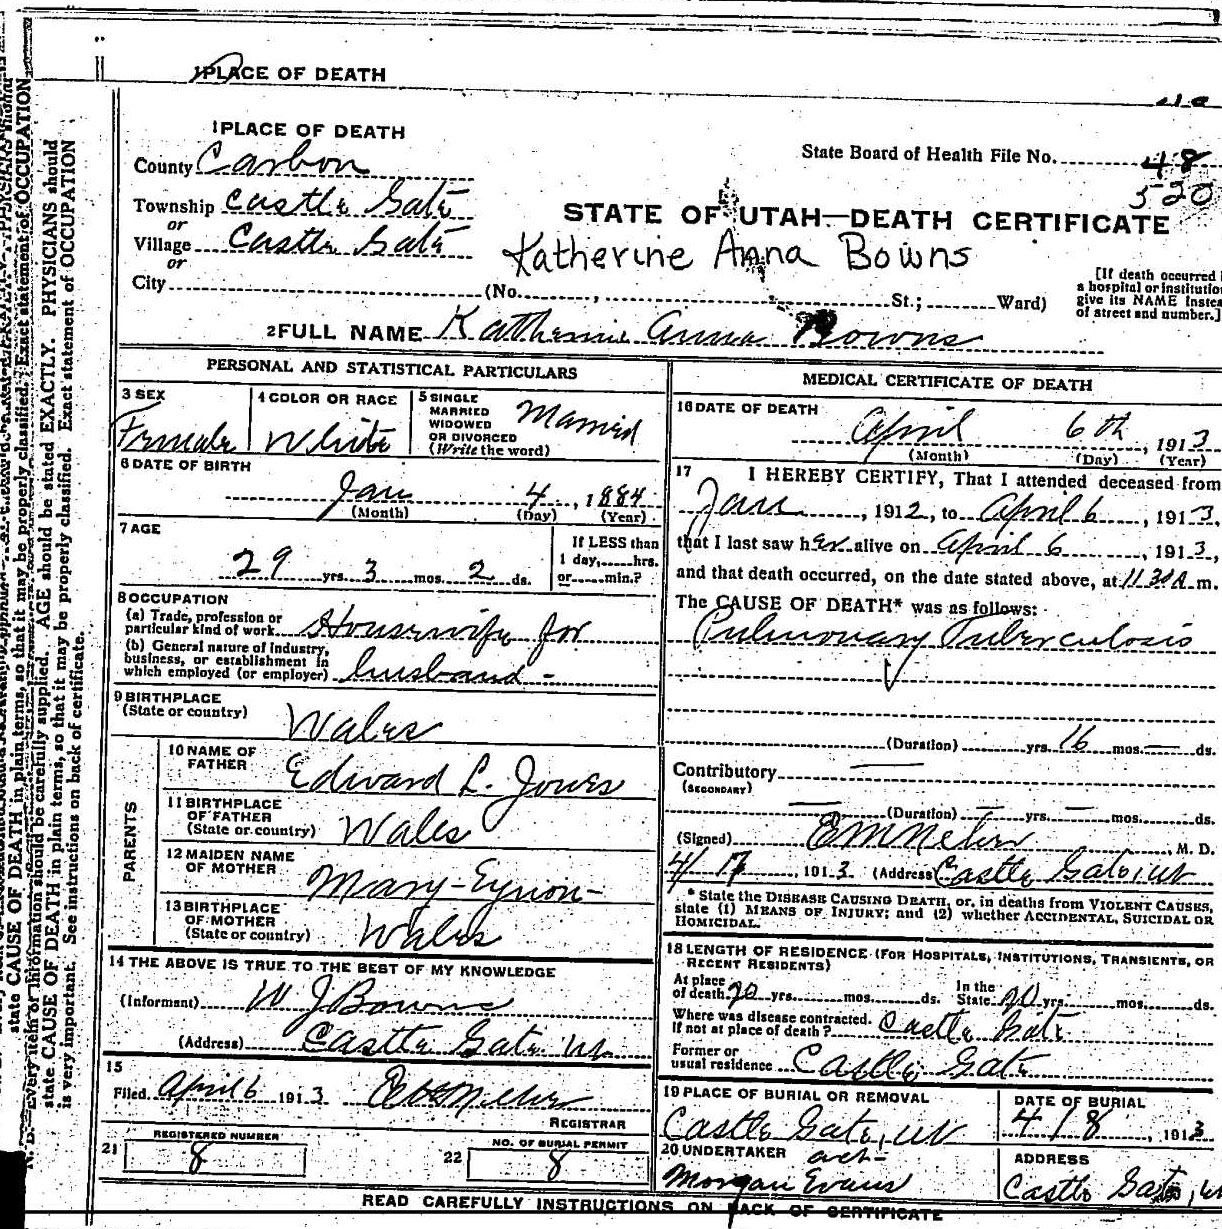 1 PLACE OF DEATH
1 PLACE OF DEATH
County Carbon
State Board of Health File No. 48
520
Township Castle Gate
or
Village Castle Gate
or
City
STATE OF UTAH—DEATH CERTIFICATE
Katherine Anna Bowns
(No. , St.; Ward)
[If death occurred
a hospital or institution
give its NAME instead
of street and number.]
2 FULL NAME Katherine Anna Bowns
PERSONAL AND STATISTICAL PARTICULARS
3 SEX
Female
4 COLOR OR RACE
White
5 SINGLE
MARRIED
WIDOWED
OR DIVORCED
(Write the word)
Married
6 DATE OF BIRTH
Jan 4, 1884
(Month) (Day) (Year)
7 AGE
29 yrs. 3 mos. 2 ds.
If LESS than
1 day, hrs.
or min.?
8 OCCUPATION
(a) Trade, profession or
particular kind of work Housewife for
(b) General nature of industry,
business, or establishment in
which employed (or employer) husband -
9 BIRTHPLACE
(State or country)
Wales
PARENTS
10 NAME OF
FATHER
Edward L. Jones
11 BIRTHPLACE
OF FATHER
(State or country) Wales
12 MAIDEN NAME
OF MOTHER
Mary
13 BIRTHPLACE
OF MOTHER
(State or country) Wales
14 THE ABOVE IS TRUE TO THE BEST OF MY KNOWLEDGE
(Informant) W J Bowns
(Address) Castle Gate Ut.
15
Filed April 6 1913
REGISTRAR
21 REGISTERED NUMBER
8
22 NO. OF BURIAL PERMIT
8
MEDICAL CERTIFICATE OF DEATH
16 DATE OF DEATH
April 6th, 1913
(Month) (Day) (Year)
17 I HEREBY CERTIFY, That I attended deceased from
Jan , 1912, to April 6, 1913,
that I last saw her alive on April 6, 1913,
and that death occurred, on the date stated above, at 11 30 A. m.
The CAUSE OF DEATH* was as follows:
Pulmonary Tuberculosis
(Duration) yrs. 16 mos. — ds.
Contributory —
(SECONDARY)
— (Duration) — yrs. — mos. ds.
(Signed) , M. D.
4/17, 1913 (Address) Castle Gate, Ut
* State the DISEASE CAUSING DEATH, or, in deaths from VIOLENT CAUSES,
state (1) MEANS OF INJURY; and (2) whether ACCIDENTAL, SUICIDAL OR
HOMICIDAL.
18 LENGTH OF RESIDENCE (FOR HOSPITALS, INSTITUTIONS, TRANSIENTS, OR
RECENT RESIDENTS)
At place
of death 20 yrs. mos. ds.
In the
State 20 yrs. mos. ds.
Where was disease contracted,
if not at place of death? Castle Gate
Former or
usual residence Castle Gate
19 PLACE OF BURIAL OR REMOVAL
Castle Gate, Ut
DATE OF BURIAL
4/8, 1913
20 UNDERTAKER
Morgan Evans
ADDRESS
Castle Gate, Ut
READ CAREFULLY INSTRUCTIONS ON BACK OF CERTIFICATE
N. B. Every item of information should be carefully supplied. AGE should be stated EXACTLY. PHYSICIANS should
state CAUSE OF DEATH in plain terms, so that it may be properly classified. Exact statement of OCCUPATION
is very important. See instructions on back of certificate.